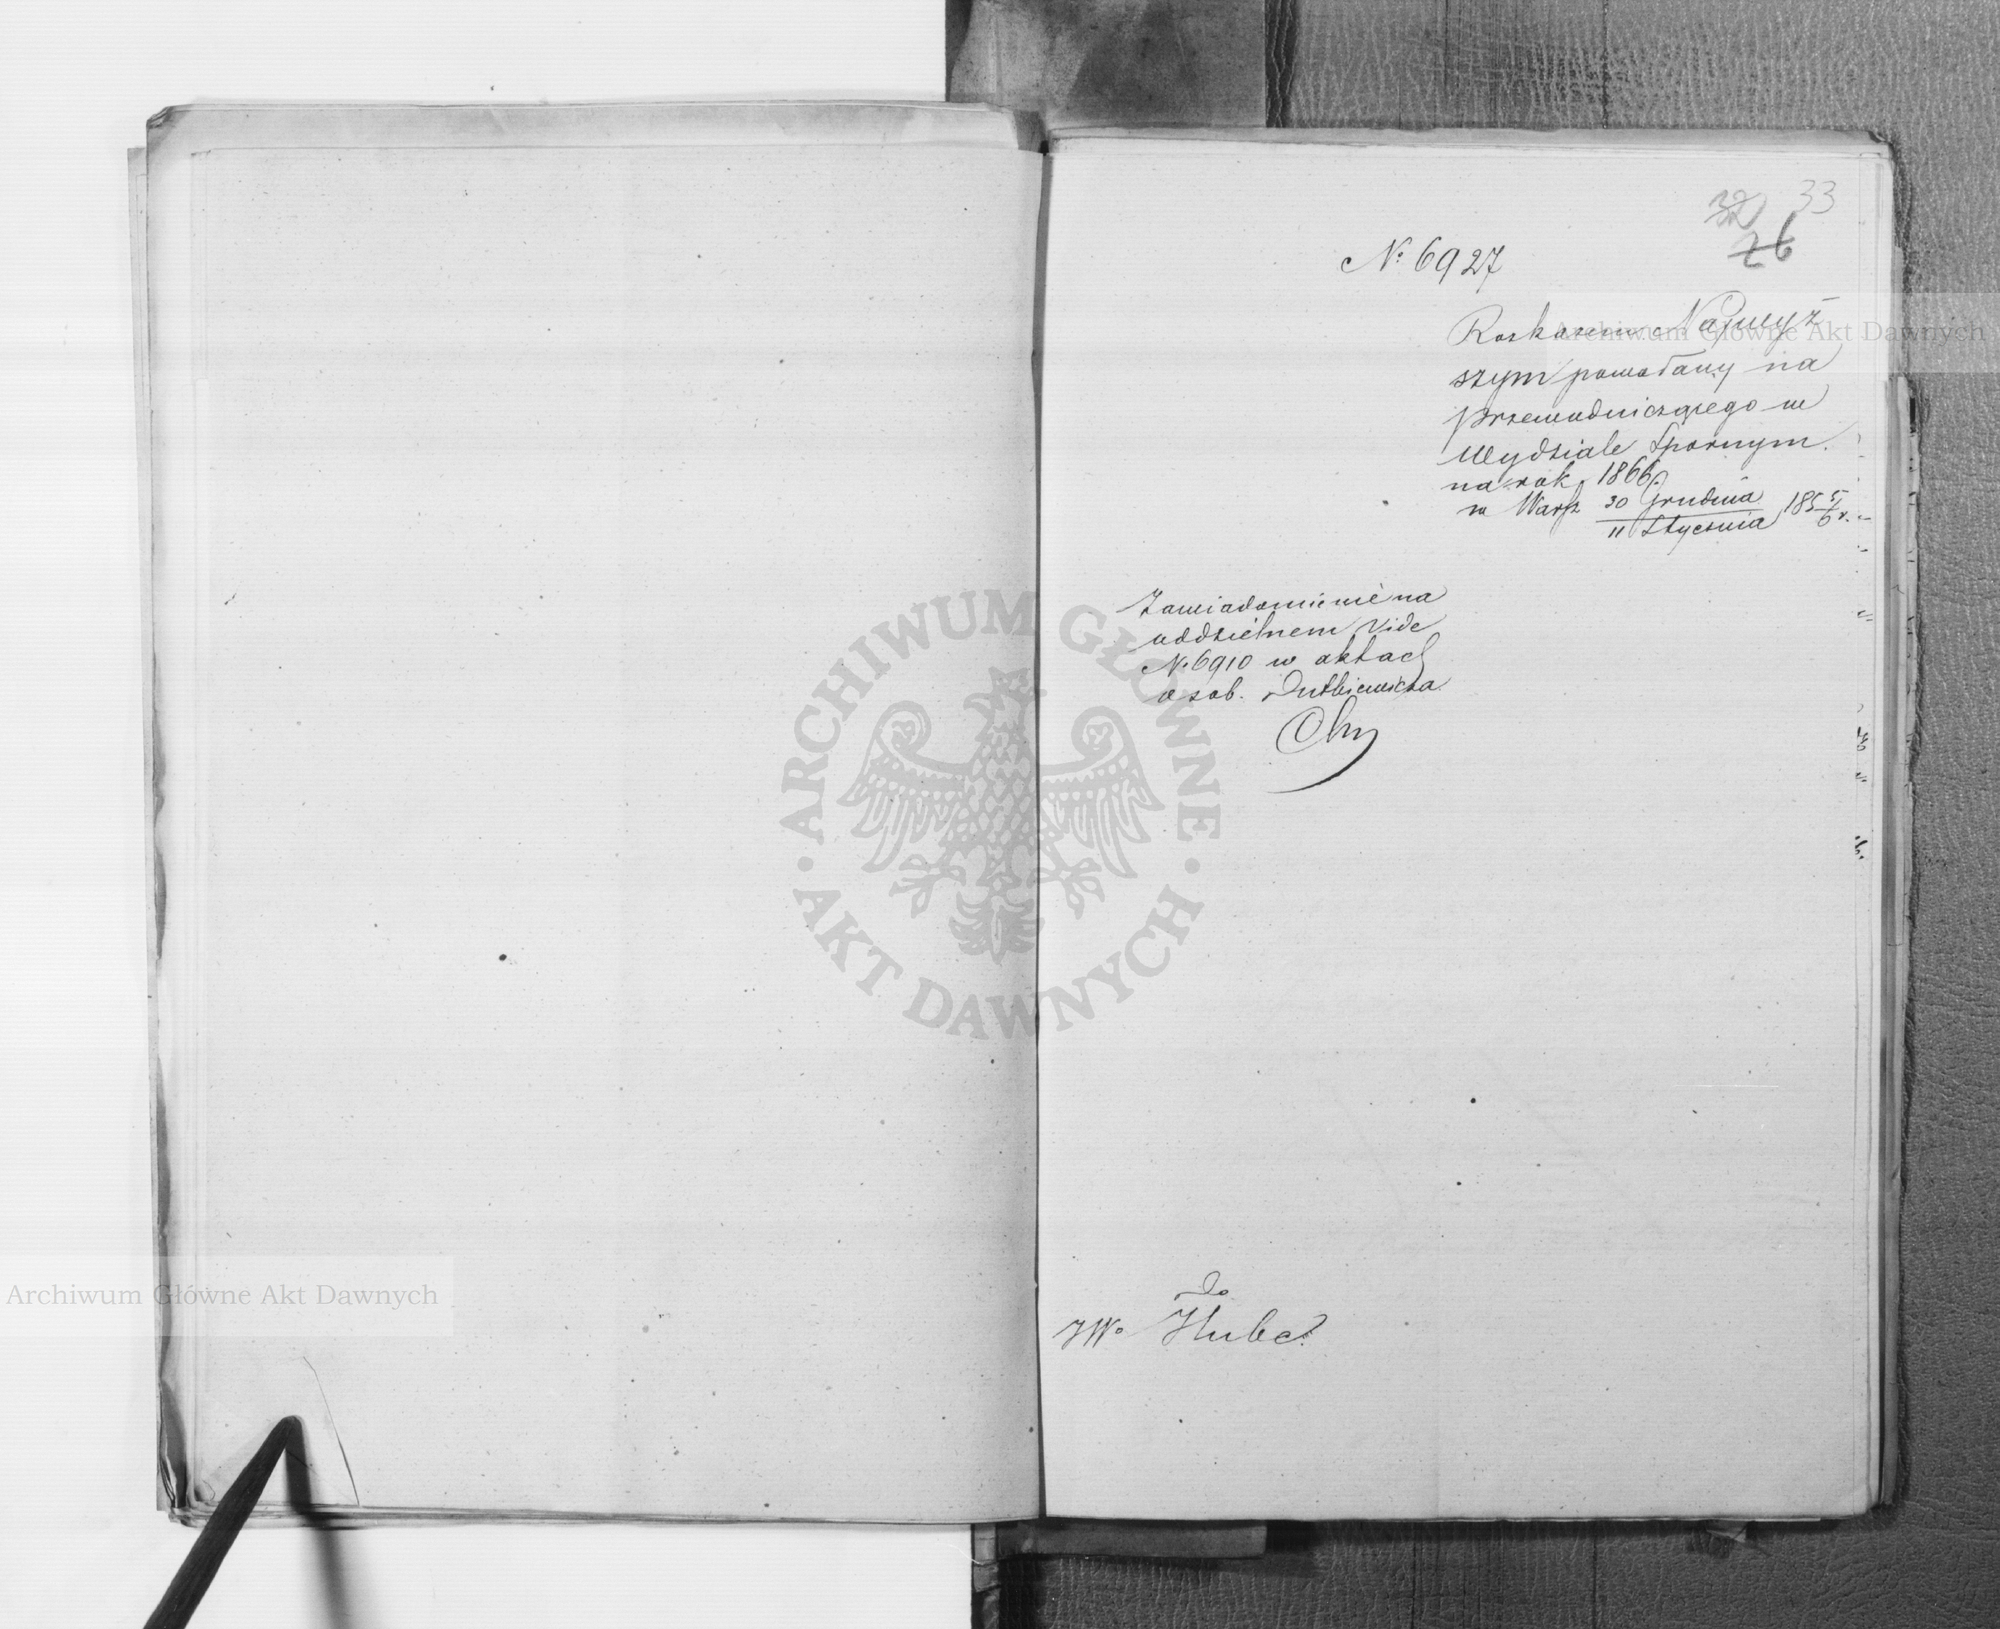 32 33
26
№ 6927
Roskazem Najwyż
szym powołany na
Przewodniczącego w
Wydziale Spornym.
na rok 1866.
w Warsz 30 Grudnia 185 5/6 r.
11 Stycznia
Zawiadomienie na
oddzielnem Vide
№ 6910 w aktach
osob. Dutkiewicza.
do
JWo Hube.
Archiwum Główne Akt Dawnych
ARCHIWUM GŁÓWNE · AKT DAWNYCH ·
Archiwum Główne Akt Dawnych